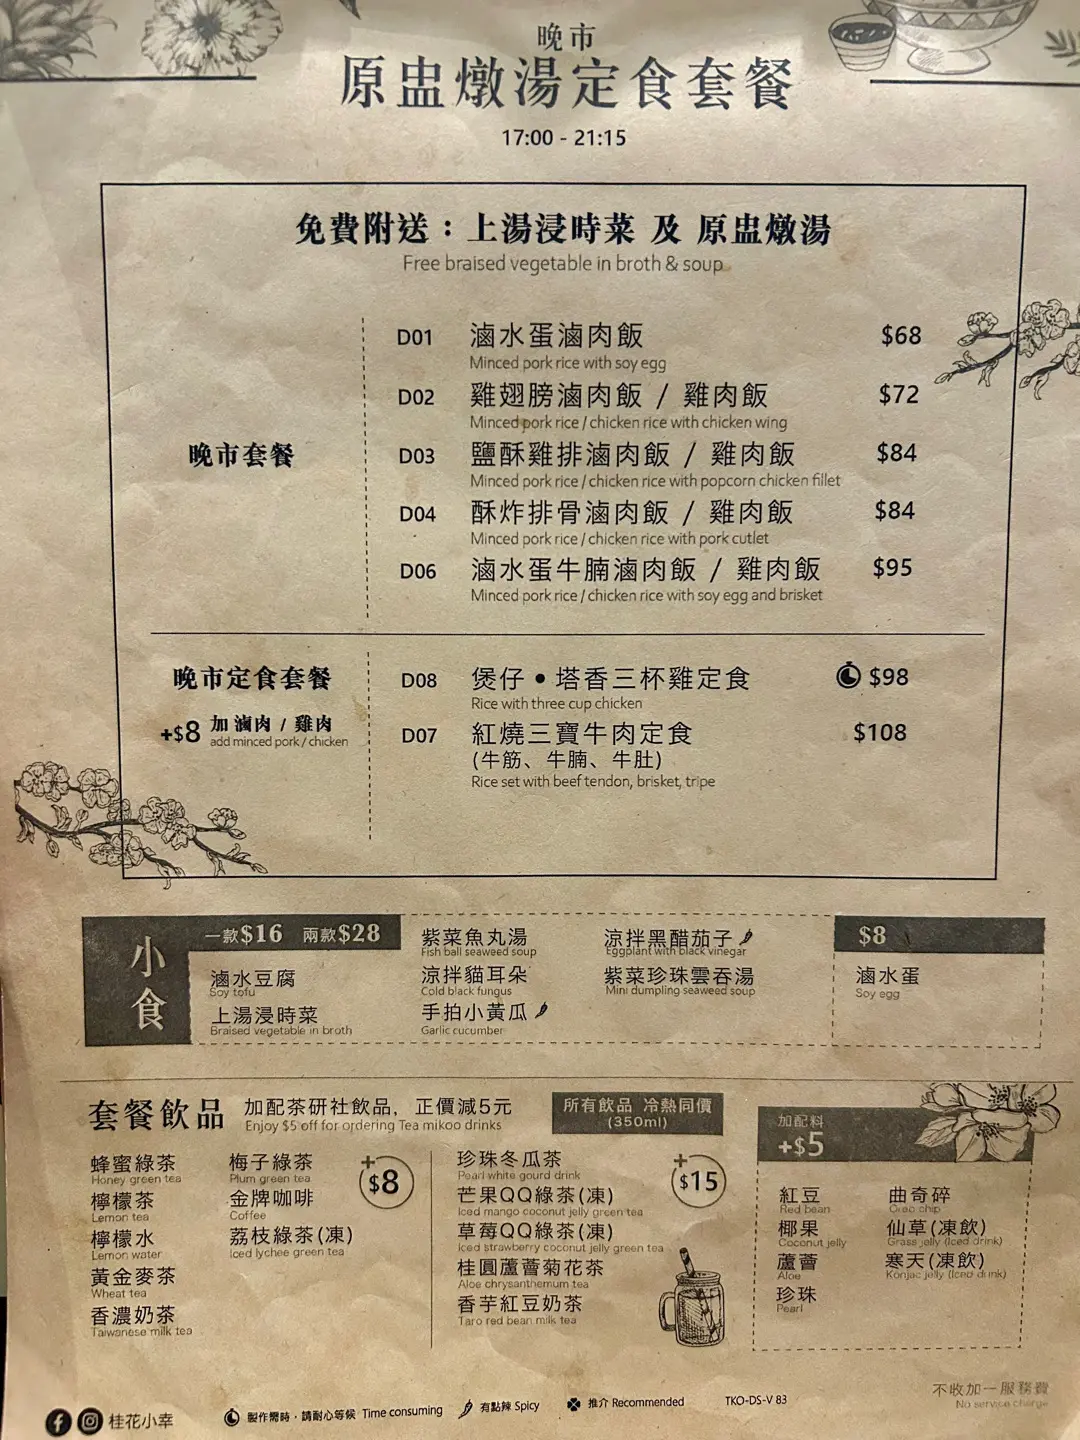 晚市
原盅燉湯定食套餐
17:00 - 21:15
免費附送：上湯浸時菜 及 原盅燉湯
Free braised vegetable in broth & soup
晚市套餐
D01 滷水蛋滷肉飯 $68
Minced pork rice with soy egg
D02 雞翅膀滷肉飯 / 雞肉飯 $72
Minced pork rice / chicken rice with chicken wing
D03 鹽酥雞排滷肉飯 / 雞肉飯 $84
Minced pork rice / chicken rice with popcorn chicken fillet
D04 酥炸排骨滷肉飯 / 雞肉飯 $84
Minced pork rice / chicken rice with pork cutlet
D06 滷水蛋牛腩滷肉飯 / 雞肉飯 $95
Minced pork rice / chicken rice with soy egg and brisket
晚市定食套餐
+$8 加滷肉 / 雞肉
add minced pork / chicken
D08 煲仔 • 塔香三杯雞定食 $98
Rice with three cup chicken
D07 紅燒三寶牛肉定食 $108
(牛筋、牛腩、牛肚)
Rice set with beef tendon, brisket, tripe
小食
一款$16 兩款$28
滷水豆腐
Soy tofu
上湯浸時菜
Braised vegetable in broth
紫菜魚丸湯
Fish ball seaweed soup
涼拌貓耳朵
Cold black fungus
手拍小黃瓜
Garlic cucumber
涼拌黑醋茄子
Eggplant with black vinegar
紫菜珍珠雲吞湯
Mini dumpling seaweed soup
$8
滷水蛋
Soy egg
套餐飲品
加配茶研社飲品，正價減5元
Enjoy $5 off for ordering Tea mikoo drinks
所有飲品 冷熱同價
(350ml)
蜂蜜綠茶
Honey green tea
檸檬茶
Lemon tea
檸檬水
Lemon water
黃金麥茶
Wheat tea
香濃奶茶
Taiwanese milk tea
梅子綠茶
Plum green tea
金牌咖啡
Coffee
荔枝綠茶(凍)
Iced lychee green tea
+$8
珍珠冬瓜茶
Pearl white gourd drink
芒果QQ綠茶(凍)
Iced mango coconut jelly green tea
草莓QQ綠茶(凍)
Iced strawberry coconut jelly green tea
桂圓蘆薈菊花茶
Aloe chrysanthemum tea
香芋紅豆奶茶
Taro red bean milk tea
+$15
加配料
+$5
紅豆
Red bean
椰果
Coconut jelly
蘆薈
Aloe
珍珠
Pearl
曲奇碎
Oreo chip
仙草(凍飲)
Grass jelly (Iced drink)
寒天(凍飲)
Konjac jelly (Iced drink)
不收加一服務費
No service charge
桂花小幸
製作需時，請耐心等候 Time consuming
有點辣 Spicy
推介 Recommended
TKO-DS-V 83